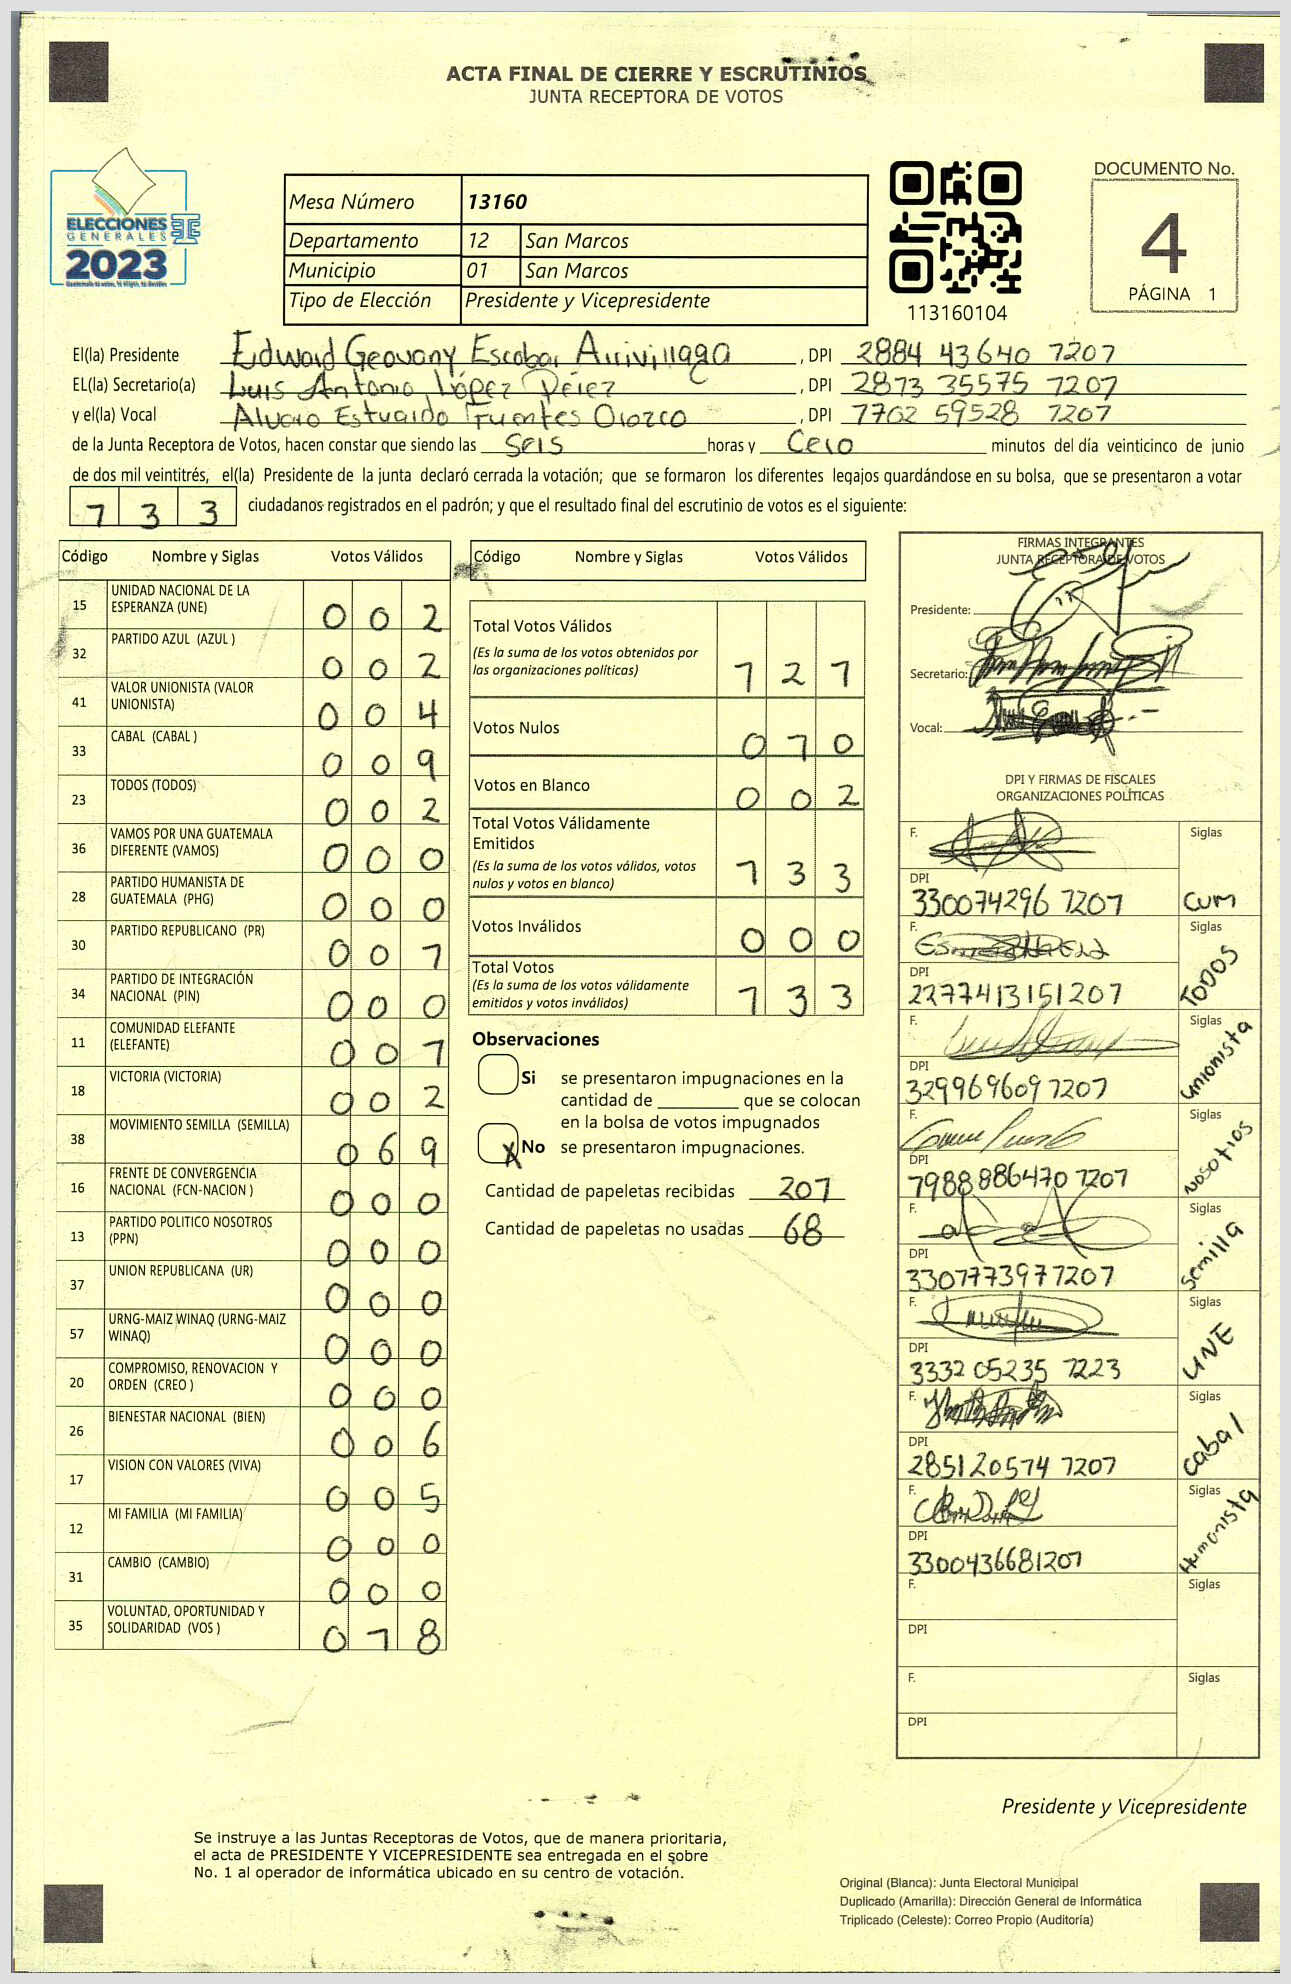 ACTA FINAL DE CIERRE Y ESCRUTINIOS
JUNTA RECEPTORA DE VOTOS
ELECCIONES
GENERALES
2023
Mesa Número 13160
Departamento 12 San Marcos
Municipio 01 San Marcos
Tipo de Elección Presidente y Vicepresidente
113160104
DOCUMENTO No.
4
PÁGINA 1
El(la) Presidente Edward Geovany Escobar Arrivillaga, DPI 2884 43640 7207
EL(la) Secretario(a) Luis Antonio López Pérez, DPI 2873 35575 7207
y el(la) Vocal Alvaro Estuardo Fuentes Orozco, DPI 7702 59528 7207
de la Junta Receptora de Votos, hacen constar que siendo las seis horas y Cero minutos del día veinticinco de junio
de dos mil veintitrés, el(la) Presidente de la junta declaró cerrada la votación; que se formaron los diferentes legajos guardándose en su bolsa, que se presentaron a votar
733 ciudadanos registrados en el padrón; y que el resultado final del escrutinio de votos es el siguiente:
Código Nombre y Siglas Votos Válidos
15 UNIDAD NACIONAL DE LA ESPERANZA (UNE) 002
32 PARTIDO AZUL (AZUL ) 002
41 VALOR UNIONISTA (VALOR UNIONISTA) 004
33 CABAL (CABAL ) 009
23 TODOS (TODOS) 002
36 VAMOS POR UNA GUATEMALA DIFERENTE (VAMOS) 000
28 PARTIDO HUMANISTA DE GUATEMALA (PHG) 000
30 PARTIDO REPUBLICANO (PR) 007
34 PARTIDO DE INTEGRACIÓN NACIONAL (PIN) 000
11 COMUNIDAD ELEFANTE (ELEFANTE) 007
18 VICTORIA (VICTORIA) 002
38 MOVIMIENTO SEMILLA (SEMILLA) 069
16 FRENTE DE CONVERGENCIA NACIONAL (FCN-NACION ) 000
13 PARTIDO POLITICO NOSOTROS (PPN) 000
37 UNION REPUBLICANA (UR) 000
57 URNG-MAIZ WINAQ (URNG-MAIZ WINAQ) 000
20 COMPROMISO, RENOVACION Y ORDEN (CREO ) 000
26 BIENESTAR NACIONAL (BIEN) 006
17 VISION CON VALORES (VIVA) 005
12 MI FAMILIA (MI FAMILIA) 000
31 CAMBIO (CAMBIO) 000
35 VOLUNTAD, OPORTUNIDAD Y SOLIDARIDAD (VOS ) 078
Código Nombre y Siglas Votos Válidos
Total Votos Válidos
(Es la suma de los votos obtenidos por
las organizaciones políticas) 727
Votos Nulos 070
Votos en Blanco 002
Total Votos Válidamente
Emitidos
(Es la suma de los votos válidos, votos
nulos y votos en blanco) 733
Votos Inválidos 000
Total Votos
(Es la suma de los votos válidamente
emitidos y votos inválidos) 733
Observaciones
Si se presentaron impugnaciones en la
cantidad de ________ que se colocan
en la bolsa de votos impugnados
X No se presentaron impugnaciones.
Cantidad de papeletas recibidas 207
Cantidad de papeletas no usadas 68
FIRMAS INTEGRANTES
JUNTA RECEPTORA DE VOTOS
Presidente:
Secretario:
Vocal:
DPI Y FIRMAS DE FISCALES
ORGANIZACIONES POLÍTICAS
F. Siglas
DPI
330074296 7207 CUM
F. Siglas
DPI
2277413151207 TODOS
F. Siglas
DPI
329969609 7207 Unionista
F. Siglas
DPI
798888647 0 7207 Nosotros
F. Siglas
DPI
3307773977207 Semilla
F. Siglas
DPI
3332 05235 7223 UNE
F. Siglas
DPI
285120574 7207 Cabal
F. Siglas
DPI
3300436681207 Humanista
F. Siglas
DPI
F. Siglas
DPI
Presidente y Vicepresidente
Se instruye a las Juntas Receptoras de Votos, que de manera prioritaria,
el acta de PRESIDENTE Y VICEPRESIDENTE sea entregada en el sobre
No. 1 al operador de informática ubicado en su centro de votación.
Original (Blanca): Junta Electoral Municipal
Duplicado (Amarilla): Dirección General de Informática
Triplicado (Celeste): Correo Propio (Auditoría)